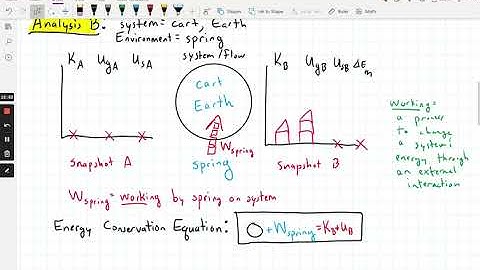 Analysis B: system= cart, Earth
Environment= spring
system/flow
K_A U_gA U_sA
K_B U_gB U_sB ΔE_in
cart
Earth
W_spring
spring
Snapshot A
Snapshot B
Working=
a process
to change
a system's
energy through
an external
interaction
W_spring = working by spring on system
Energy Conservation Equation: O + W_spring = K_B + U_B